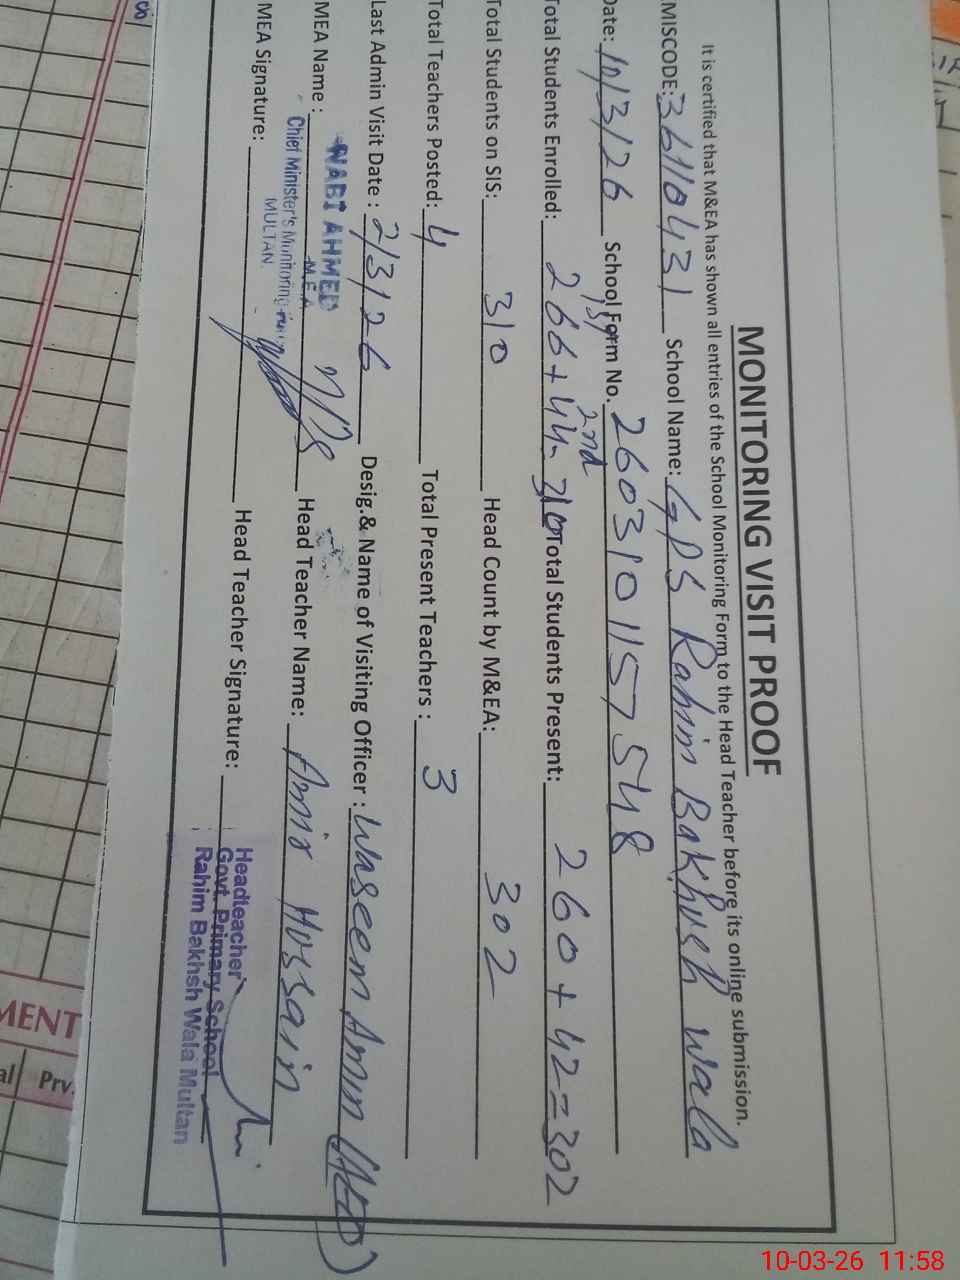 MONITORING VISIT PROOF
It is certified that M&EA has shown all entries of the School Monitoring Form to the Head Teacher before its online submission.
MISCODE: 36110431 School Name: GPS Rahim Bakhush wala
Date: 10/3/26 School Form No. 2603101157548
1st 2nd
Total Students Enrolled: 266+44=310 Total Students Present: 260+42=302
Total Students on SIS: 310 Head Count by M&EA: 302
Total Teachers Posted: 4 Total Present Teachers : 3
Last Admin Visit Date : 2/3/26 Desig.& Name of Visiting Officer : Waseem Amin (AEO)
MEA Name : NABI AHMED Head Teacher Name: Amir Hussain
M.E.A
Chief Minister's Monitoring
MULTAN.
MEA Signature: Head Teacher Signature:
Headteacher
Govt. Primary School
Rahim Bakhsh Wala Multan
MENT
al Prv.
10-03-26 11:58